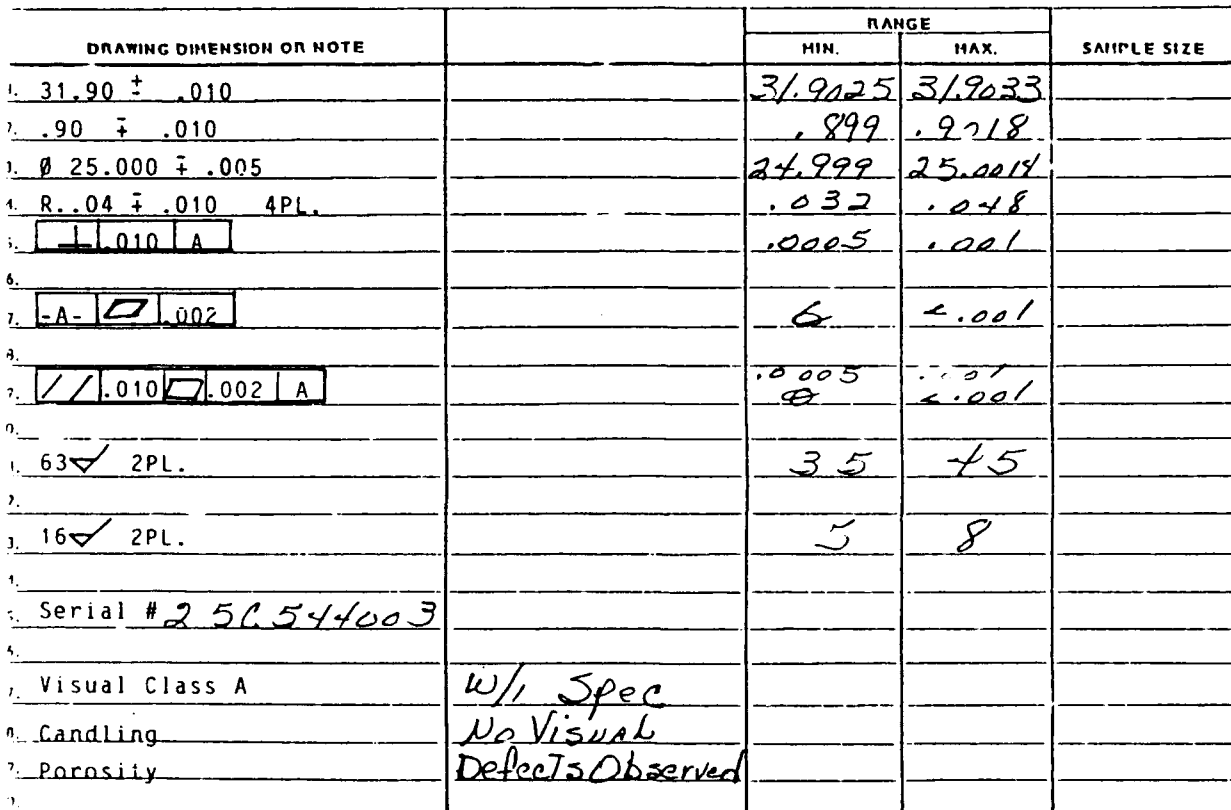 RANGE
DRAWING DIMENSION OR NOTE MIN. MAX. SAMPLE SIZE
31.90 ± .010 31.9025 31.9033
.90 ∓ .010 .899 .9018
Ø 25.000 ∓ .005 24.999 25.0014
R..04 ∓ .010 4PL. .032 .048
⊥ .010 A .0005 .001
6.
7. -A- ▱ .002 <.001
.0005
// .010 ▱ .002 A <.001
63 2PL. 35 45
16 2PL. 5 8
Serial # 25C544003
Visual Class A W/i Spec
Candling No Visual
Porosity Defects Observed